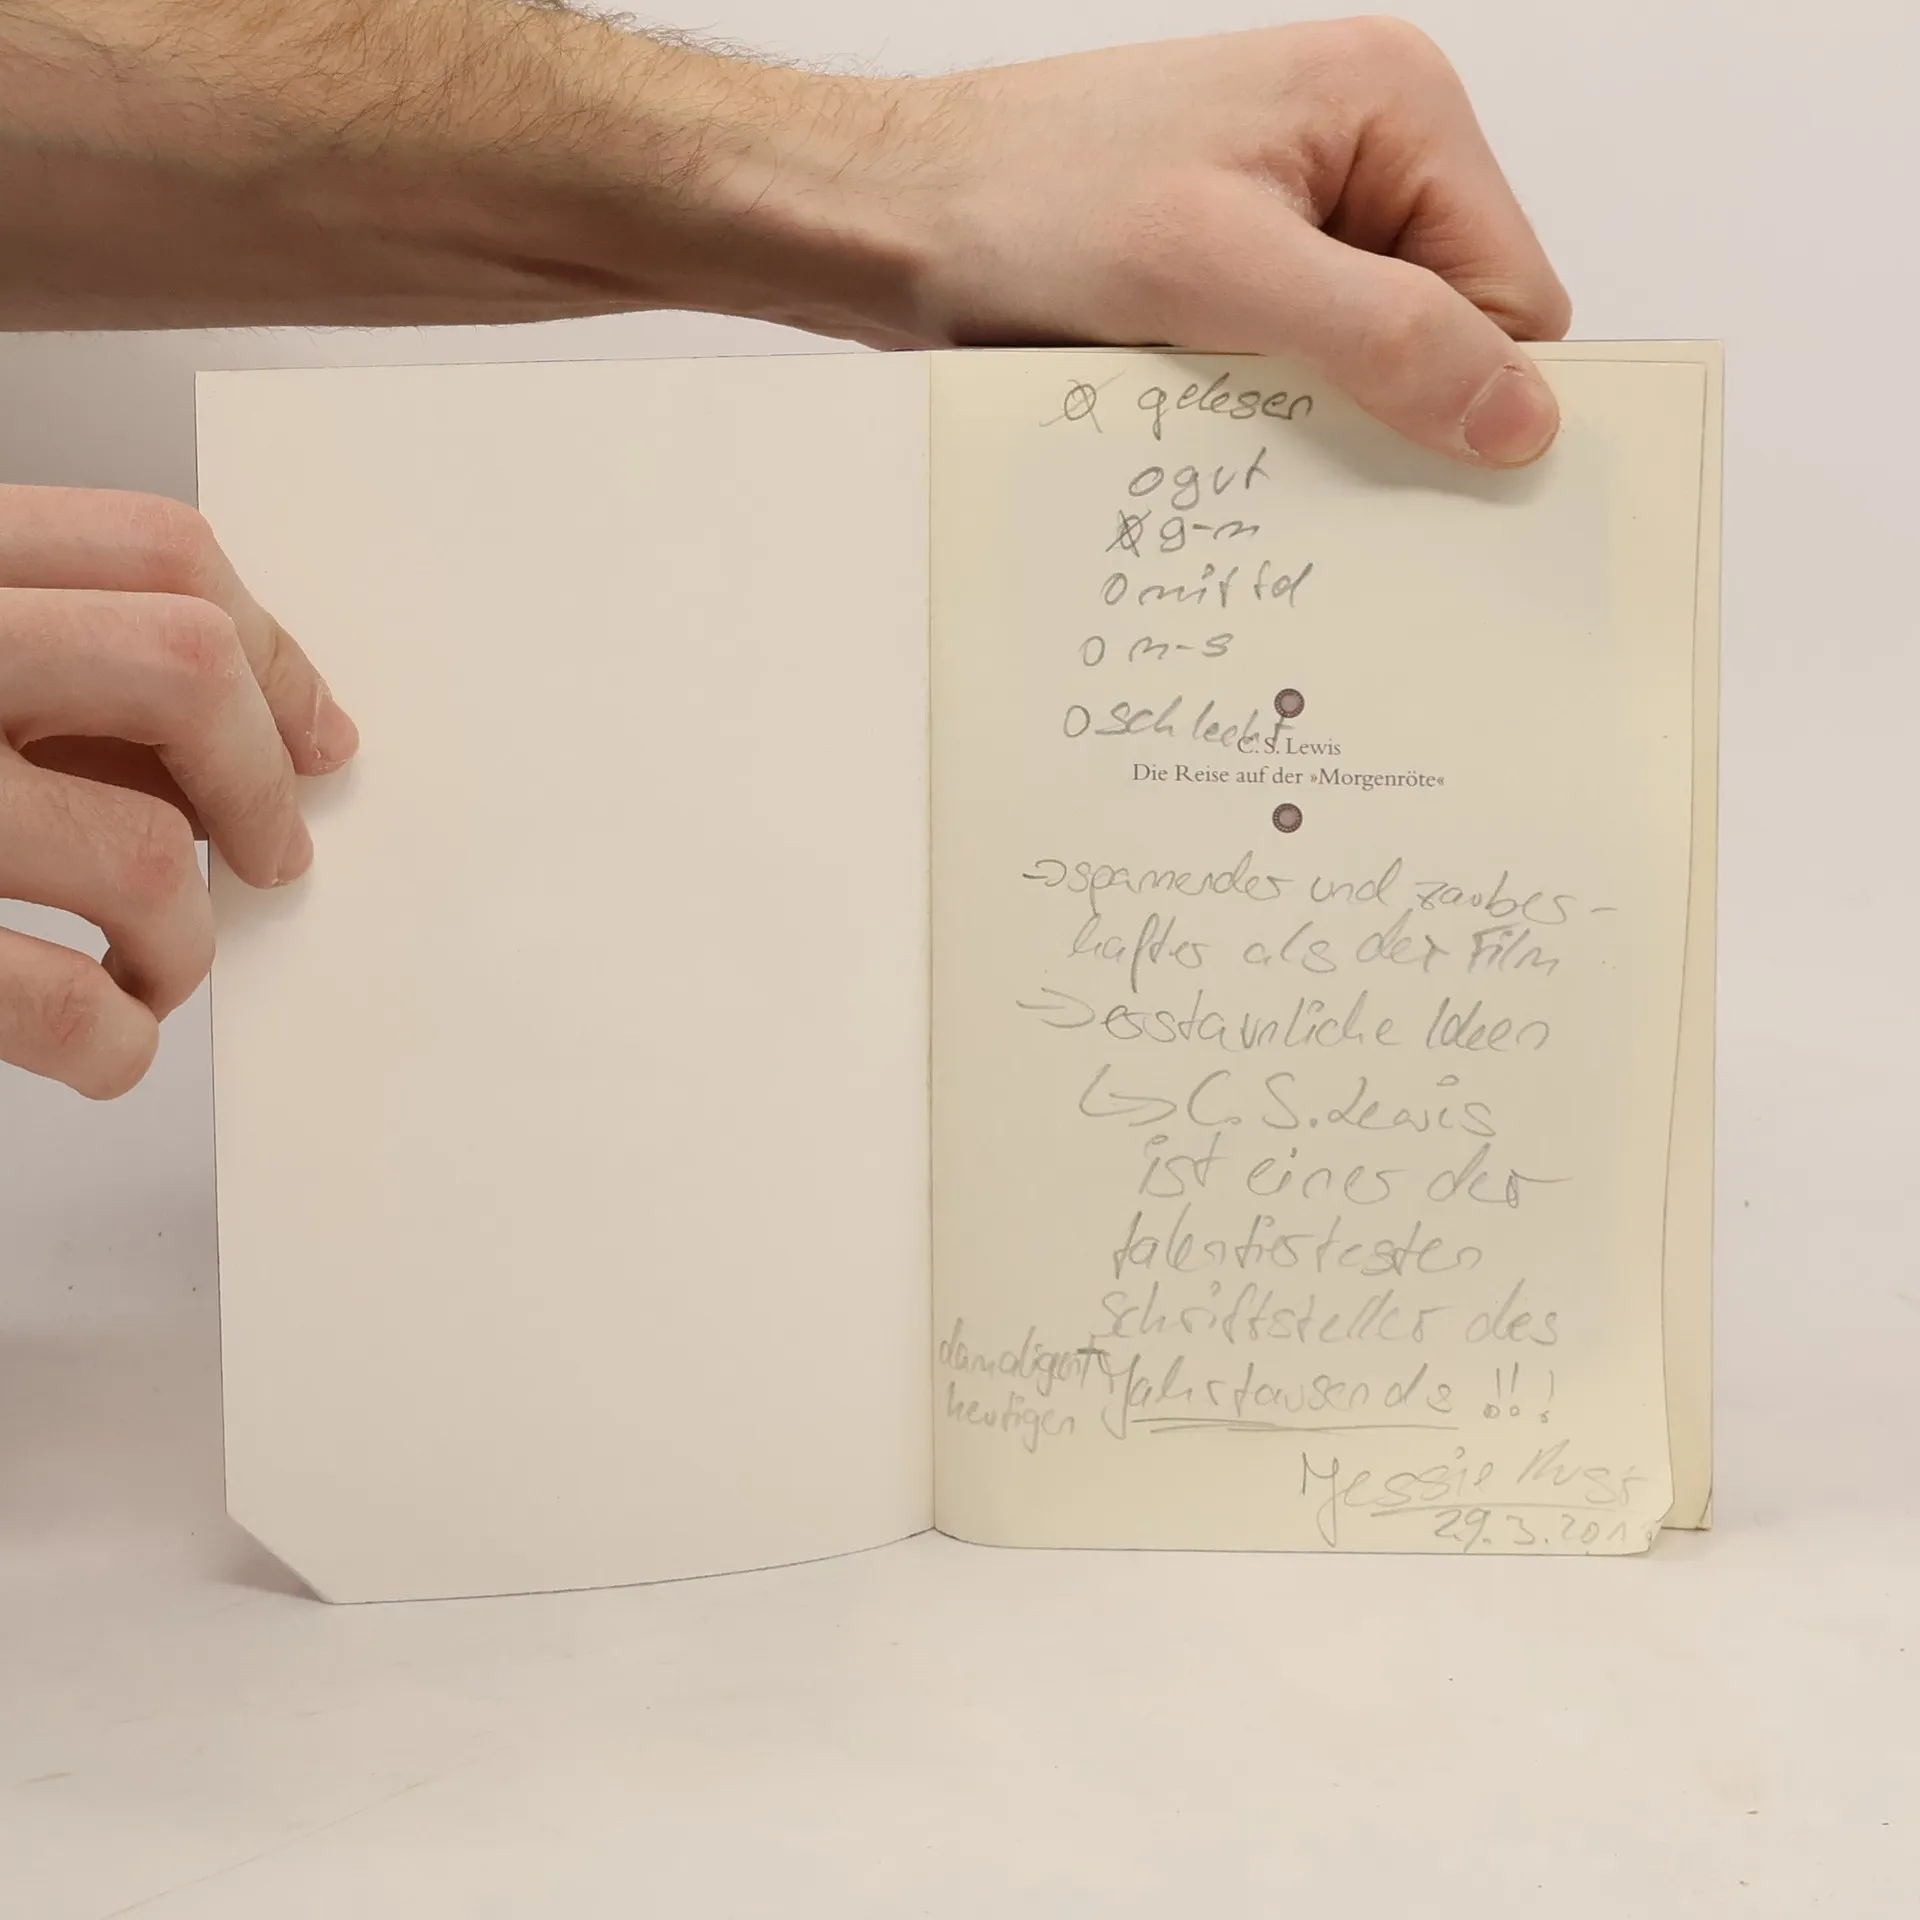 ⊗ gelesen
o gut
⊗ g-m
o mittel
o m-s
o schlecht
C. S. Lewis
Die Reise auf der »Morgenröte«
→ spannender und zauber-
hafter als der Film
→ erstaunliche Ideen
↳ C. S. Lewis
ist einer der
talentiertesten
Schriftsteller des
damaligen +
heutigen
Jahrtausends !!!
Jessie
29.3.201